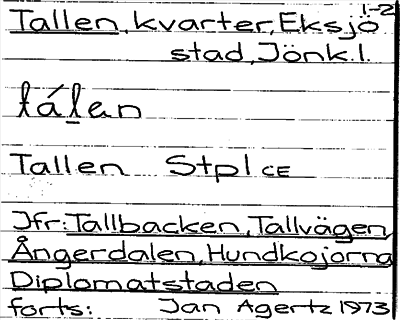 1-2
Tallen, kvarter, Eksjö
stad, Jönk.l.
tálan
Tallen Stpl CE
Jfr: Tallbacken, Tallvägen,
Ångerdalen, Hundkojorna
Diplomatstaden
forts: Jan Agertz 1973